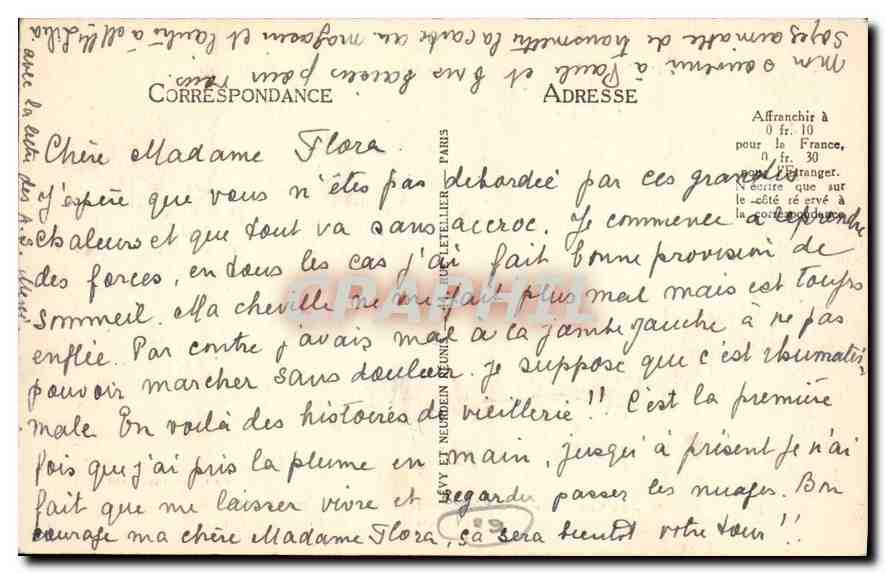 Mon souvenir à Paule et bons baisers pour vous.
Soyez aimable de transmettre la carte au magasin et l'autre à Lilia
avec la lettre des A.S. Merci
CORRESPONDANCE
ADRESSE
Affranchir à
0 fr. 10
pour la France,
0 fr. 30
pour l'Etranger.
N'écrire que sur
le côté réservé à
la correspondance
LÉVY ET NEURDEIN RÉUNIS, 44, RUE LETELLIER — PARIS
Chère Madame Flora
J'espère que vous n'êtes pas débordée par ces grandes
chaleurs et que tout va sans accroc. Je commence à reprendre
des forces, en tous les cas j'ai fait bonne provision de
sommeil. Ma cheville ne me fait plus mal mais est toujrs
enflée. Par contre j'avais mal à la jambe gauche à ne pas
pouvoir marcher sans douleur. Je suppose que c'est rhumatis-
male. En voilà des histoires de vieillerie!! C'est la première
fois que j'ai pris la plume en main, jusqu'à présent je n'ai
fait que me laisser vivre et regarder passer les nuages. Bon
courage ma chère Madame Flora, ça sera bientôt votre tour!!
19
CPAPHIL